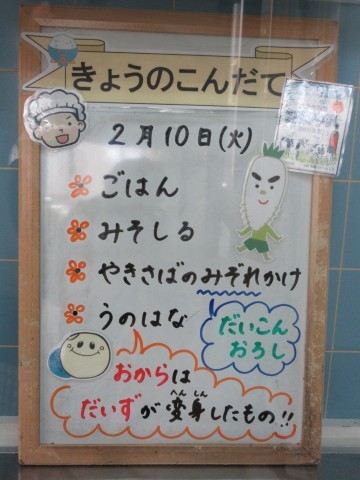 きょうのこんだて
2月10日(火)
ごはん
みそしる
やきさばのみぞれかけ
うのはな
だいこん
おろし
おからは
だいずが変身したもの!!
へんしん